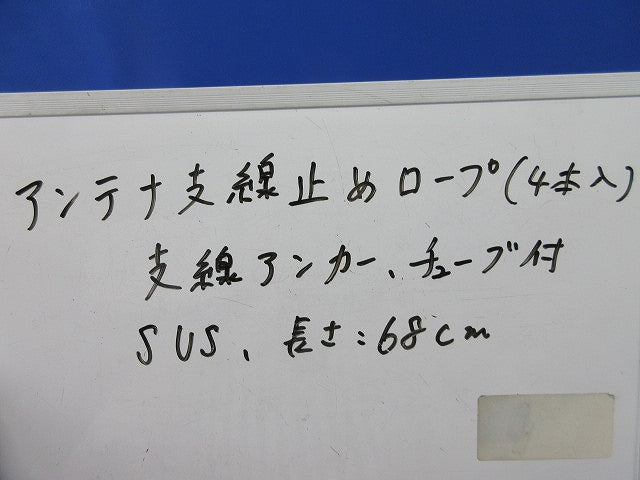 アンテナ支線止めロープ(4本入)
支線アンカー、チューブ付
SUS、長さ:68cm